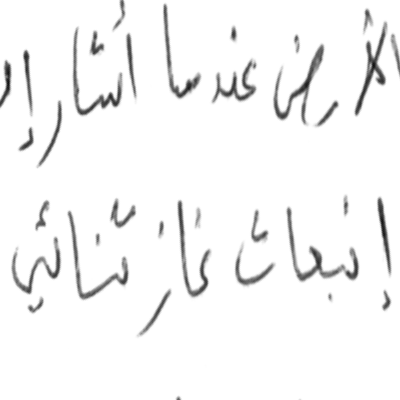 الأرض عندما أشار إ
إنبعاث غاز ثنائي